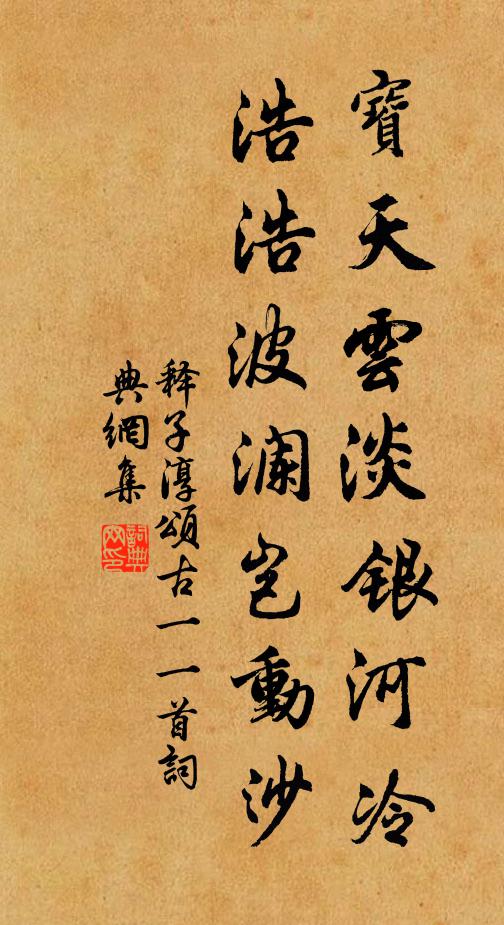 寶天雲淡銀河冷
浩浩波瀾豈動沙
釋子淳頌古一一首詞
典網集
詞典
网印